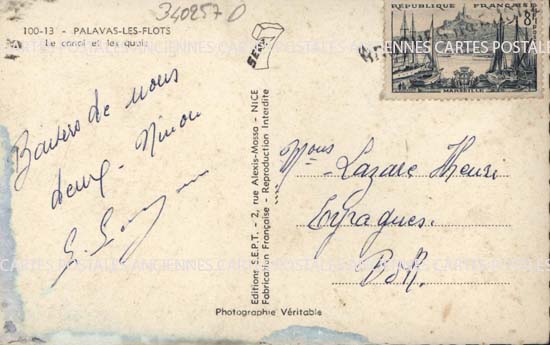 340257 D
100-13 - PALAVAS-LES-FLOTS
A Le canal et les quais
Baisers de nous
deux - Ninou
SEPT
Editions S.E.P.T. - 2, rue Alexis-Mossa - NICE
Fabrication Française - Reproduction Interdite
Photographie Véritable
RÉPUBLIQUE FRANÇAISE
8F
MARSEILLE
Lazare Henri
Eyragues.
BdR.
CARTES POSTALES ANCIENNES CARTES POSTALES
CARTES POSTALES ANCIENNES CARTES POSTALES ANCIENNES CARTES POSTALES